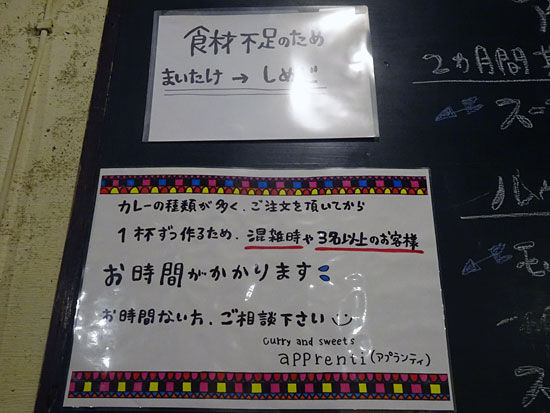 食材不足のため
まいたけ → しめじ
カレーの種類が多く、ご注文を頂いてから
1杯ずつ作るため、混雑時や3名以上のお客様
お時間がかかります
お時間ない方、ご相談下さい
curry and sweets
apprenti(アプランティ)
2ヵ月間
スー